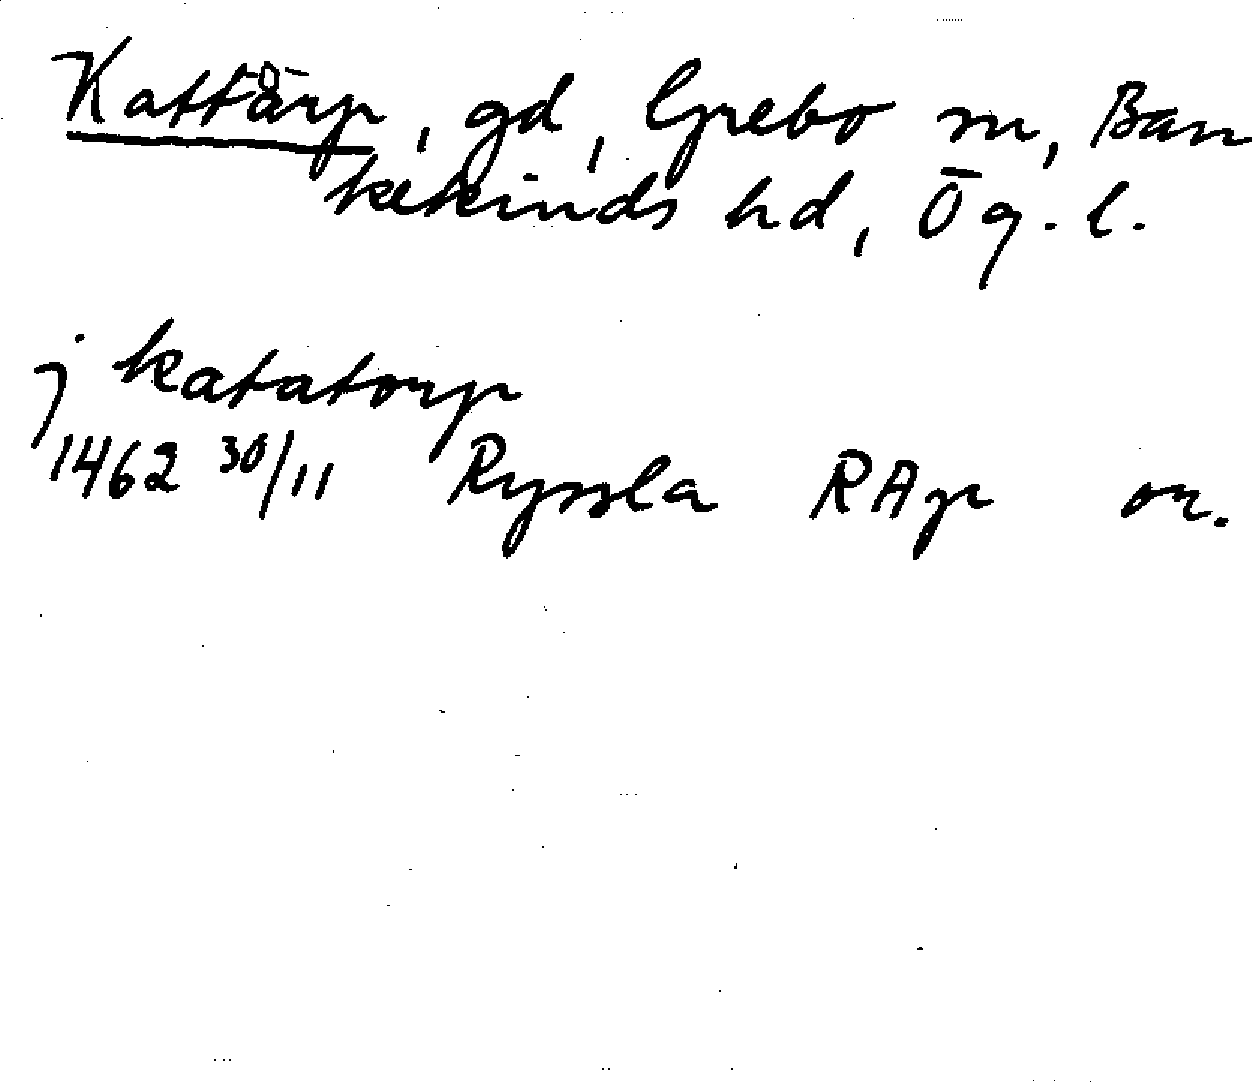 Kattårp, gd, Grebo sn, Ban
kekinds hd, Ög. l.
j katatorp
1462 30/11 Ryssla RAp or.